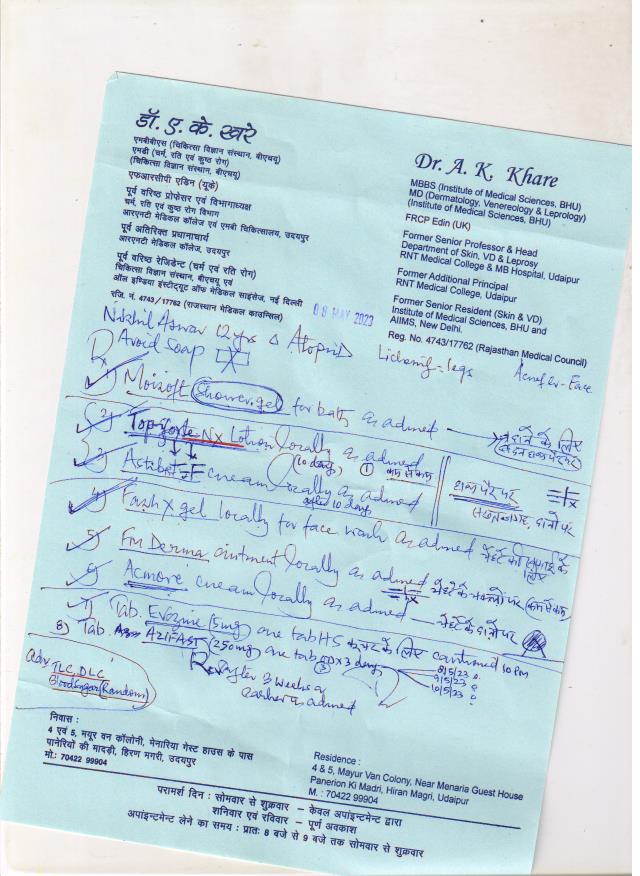 डॉ. ए. के. खरे
एमबीबीएस (चिकित्सा विज्ञान संस्थान, बीएचयू)
एमडी (चर्म, रति एवं कुष्ठ रोग)
(चिकित्सा विज्ञान संस्थान, बीएचयू)
एफआरसीपी एडिन (यूके)
पूर्व वरिष्ठ प्रोफेसर एवं विभागाध्यक्ष
चर्म, रति एवं कुष्ठ रोग विभाग
आरएनटी मेडिकल कॉलेज एवं एमबी चिकित्सालय, उदयपुर
पूर्व अतिरिक्त प्रधानाचार्य
आरएनटी मेडिकल कॉलेज, उदयपुर
पूर्व वरिष्ठ रेजिडेन्ट (चर्म एवं रति रोग)
चिकित्सा विज्ञान संस्थान, बीएचयू एवं
ऑल इण्डिया इंस्टीट्यूट ऑफ मेडिकल साइंसेज, नई दिल्ली
रजि. नं. 4743/17762 (राजस्थान मेडिकल काउन्सिल)
Dr. A. K. Khare
MBBS (Institute of Medical Sciences, BHU)
MD (Dermatology, Venereology & Leprology)
(Institute of Medical Sciences, BHU)
FRCP Edin (UK)
Former Senior Professor & Head
Department of Skin, VD & Leprosy
RNT Medical College & MB Hospital, Udaipur
Former Additional Principal
RNT Medical College, Udaipur
Former Senior Resident (Skin & VD)
Institute of Medical Sciences, BHU and
AIIMS, New Delhi.
Reg. No. 4743/17762 (Rajasthan Medical Council)
08 MAY 2023
Nikhil 12 yrs
Avoid Soap
1) Moisoft Shower gel for bath as advised
2) Topiforte NX Lotion locally as advised
(10 days)
3) cream locally as advised
after 10 days
4) gel locally for face wash as advised
5) FM Derma ointment locally as advised
6) Acmore cream locally as advised
7) Tab. (5mg) one tab HS के लिए continued 10 PM
8) Tab. AZIFAST (250mg) one tab OD x 3 days
8/5/23
9/5/23
10/5/23
after 3 weeks
earlier as advised
Adv TLC, DLC
Blood Sugar (Random)
निवास :
4 एवं 5, मयूर वन कॉलोनी, मेनारिया गेस्ट हाउस के पास
पानेरियों की मादड़ी, हिरण मगरी, उदयपुर
मो.: 70422 99904
Residence :
4 & 5, Mayur Van Colony, Near Menaria Guest House
Panerion Ki Madri, Hiran Magri, Udaipur
M. : 70422 99904
परामर्श दिन : सोमवार से शुक्रवार – केवल अपांइन्टमेन्ट द्वारा
शनिवार एवं रविवार – पूर्ण अवकाश
अपांइन्टमेन्ट लेने का समय : प्रातः 8 बजे से 9 बजे तक सोमवार से शुक्रवार